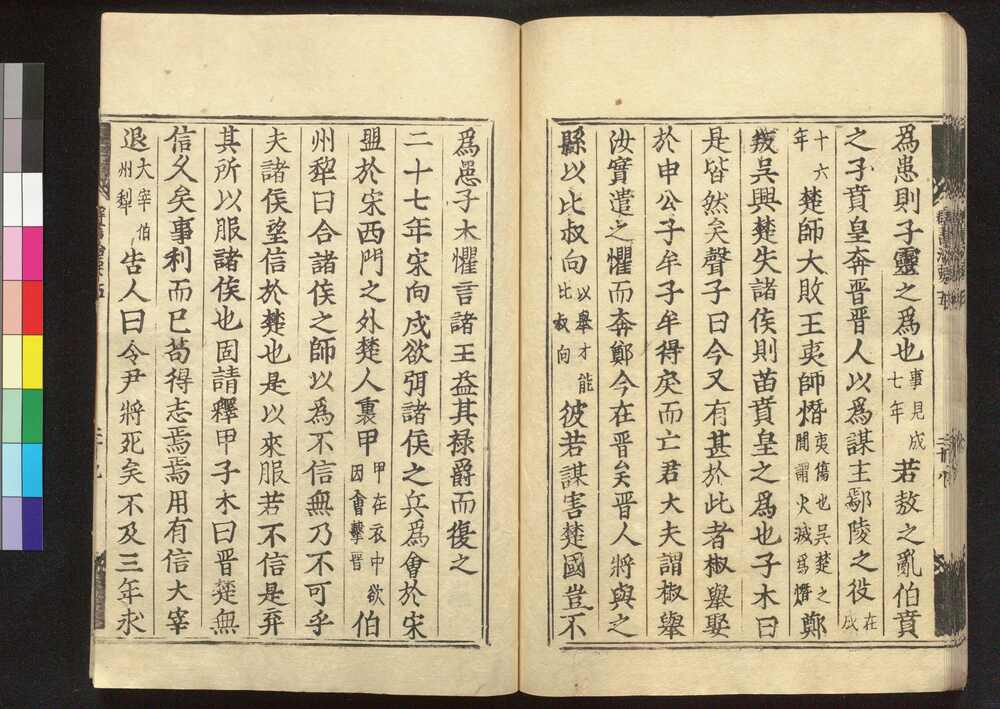 爲患則子靈之爲也事見成七年若敖之亂伯賁
之子賁皇奔晉晉人以爲謀主鄢陵之役在成
十六年楚師大敗王夷師熸夷傷也吳楚之間謂火滅爲熸鄭
叛吳興楚失諸侯則苗賁皇之爲也子木曰
是皆然矣聲子曰今又有甚於此者椒舉娶
於申公子牟子牟得戾而亡君大夫謂椒舉
汝實遣之懼而奔鄭今在晉矣晉人將與之
縣以比叔向以舉才能比叔向彼若謀害楚國豈不
爲患子木懼言諸王益其祿爵而復之
二十七年宋向戌欲弭諸侯之兵爲會於宋
盟於宋西門之外楚人裏甲甲在衣中欲因會擊晉伯
州犁曰合諸侯之師以爲不信無乃不可乎
夫諸侯望信於楚也是以來服若不信是弃
其所以服諸侯也固請釋甲子木曰晉楚無
信久矣事利而已苟得志焉焉用有信大宰
退大宰伯州犁告人曰令尹將死矣不及三年求